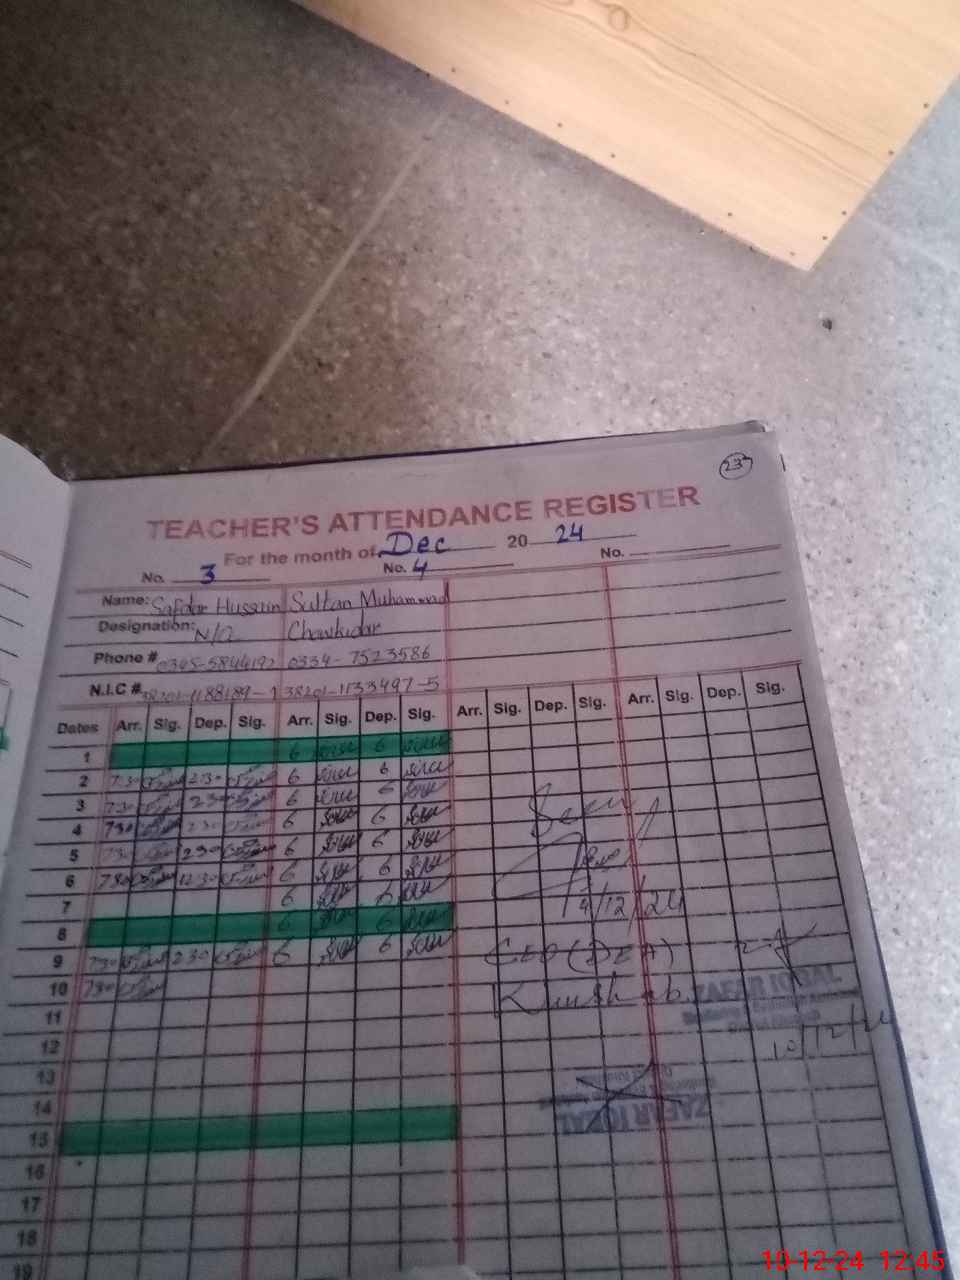 23
TEACHER'S ATTENDANCE REGISTER
For the month of Dec 20 24
No. 3 No. 4 No.
Name: Safdar Hussain Sultan Muhammad
Designation: N/Q Chowkidar
Phone # 0345-5844192 0334-7523586
N.I.C # 38201-1188189-1 38201-1133497-5
Dates Arr. Sig. Dep. Sig. Arr. Sig. Dep. Sig. Arr. Sig. Dep. Sig. Arr. Sig. Dep. Sig.
1 6 6
2 730 230 6 6
3 730 230 6 6
4 730 230 6 6
5 730 230 6 6
6 730 1230 6 6
7 6
8 6 6
9 730 230 6 6
10 730
11
12
13
14
15
16
17
18
19
Seen
/12/24
CEO (DEA)
Khushab
ZAFAR IQBAL
10/12/24
ZAFAR IQBAL
10-12-24 12:45